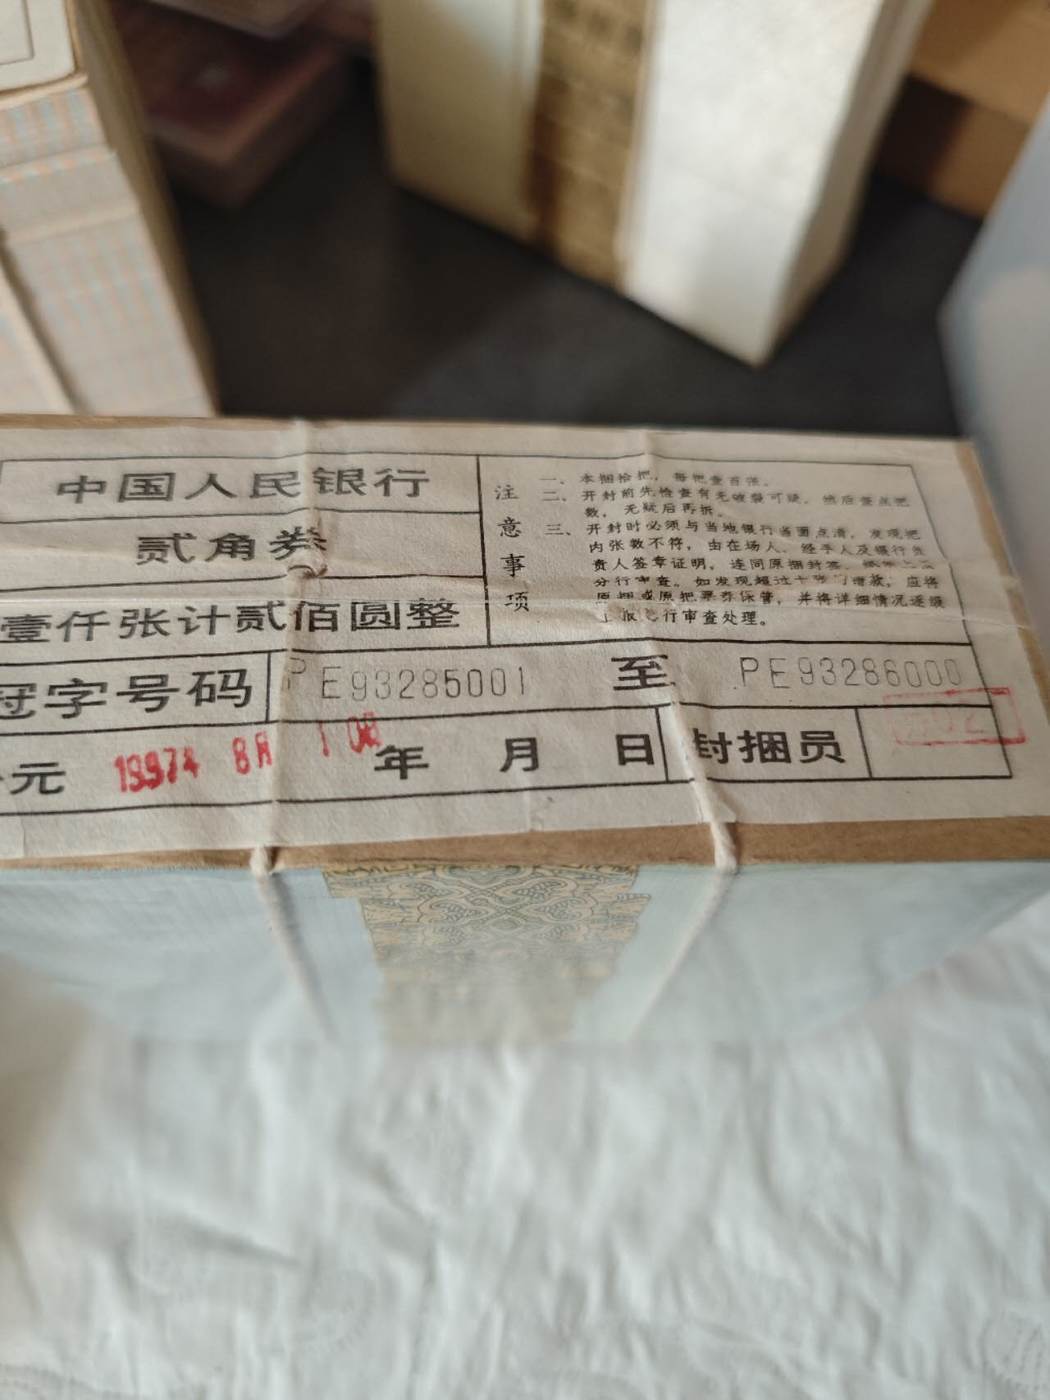 中国人民银行
贰角券
壹仟张计贰佰圆整
冠字号码 PE93285001 至 PE93286000
元 1997年 8月 年 月 日 封捆员
注意事项
一、本捆拾把，每把壹百张。
二、开封前先检查有无破裂可疑，然后查点把
数，无疑后再拆。
三、开封时必须与当地银行当面点清，发现把
内张数不符，由在场人、经手人及银行负
责人签章证明，连同原捆封签、
分行审查。如发现超过十张 应将
原捆或原把票券保管，并将详细情况逐级
上报 行审查处理。